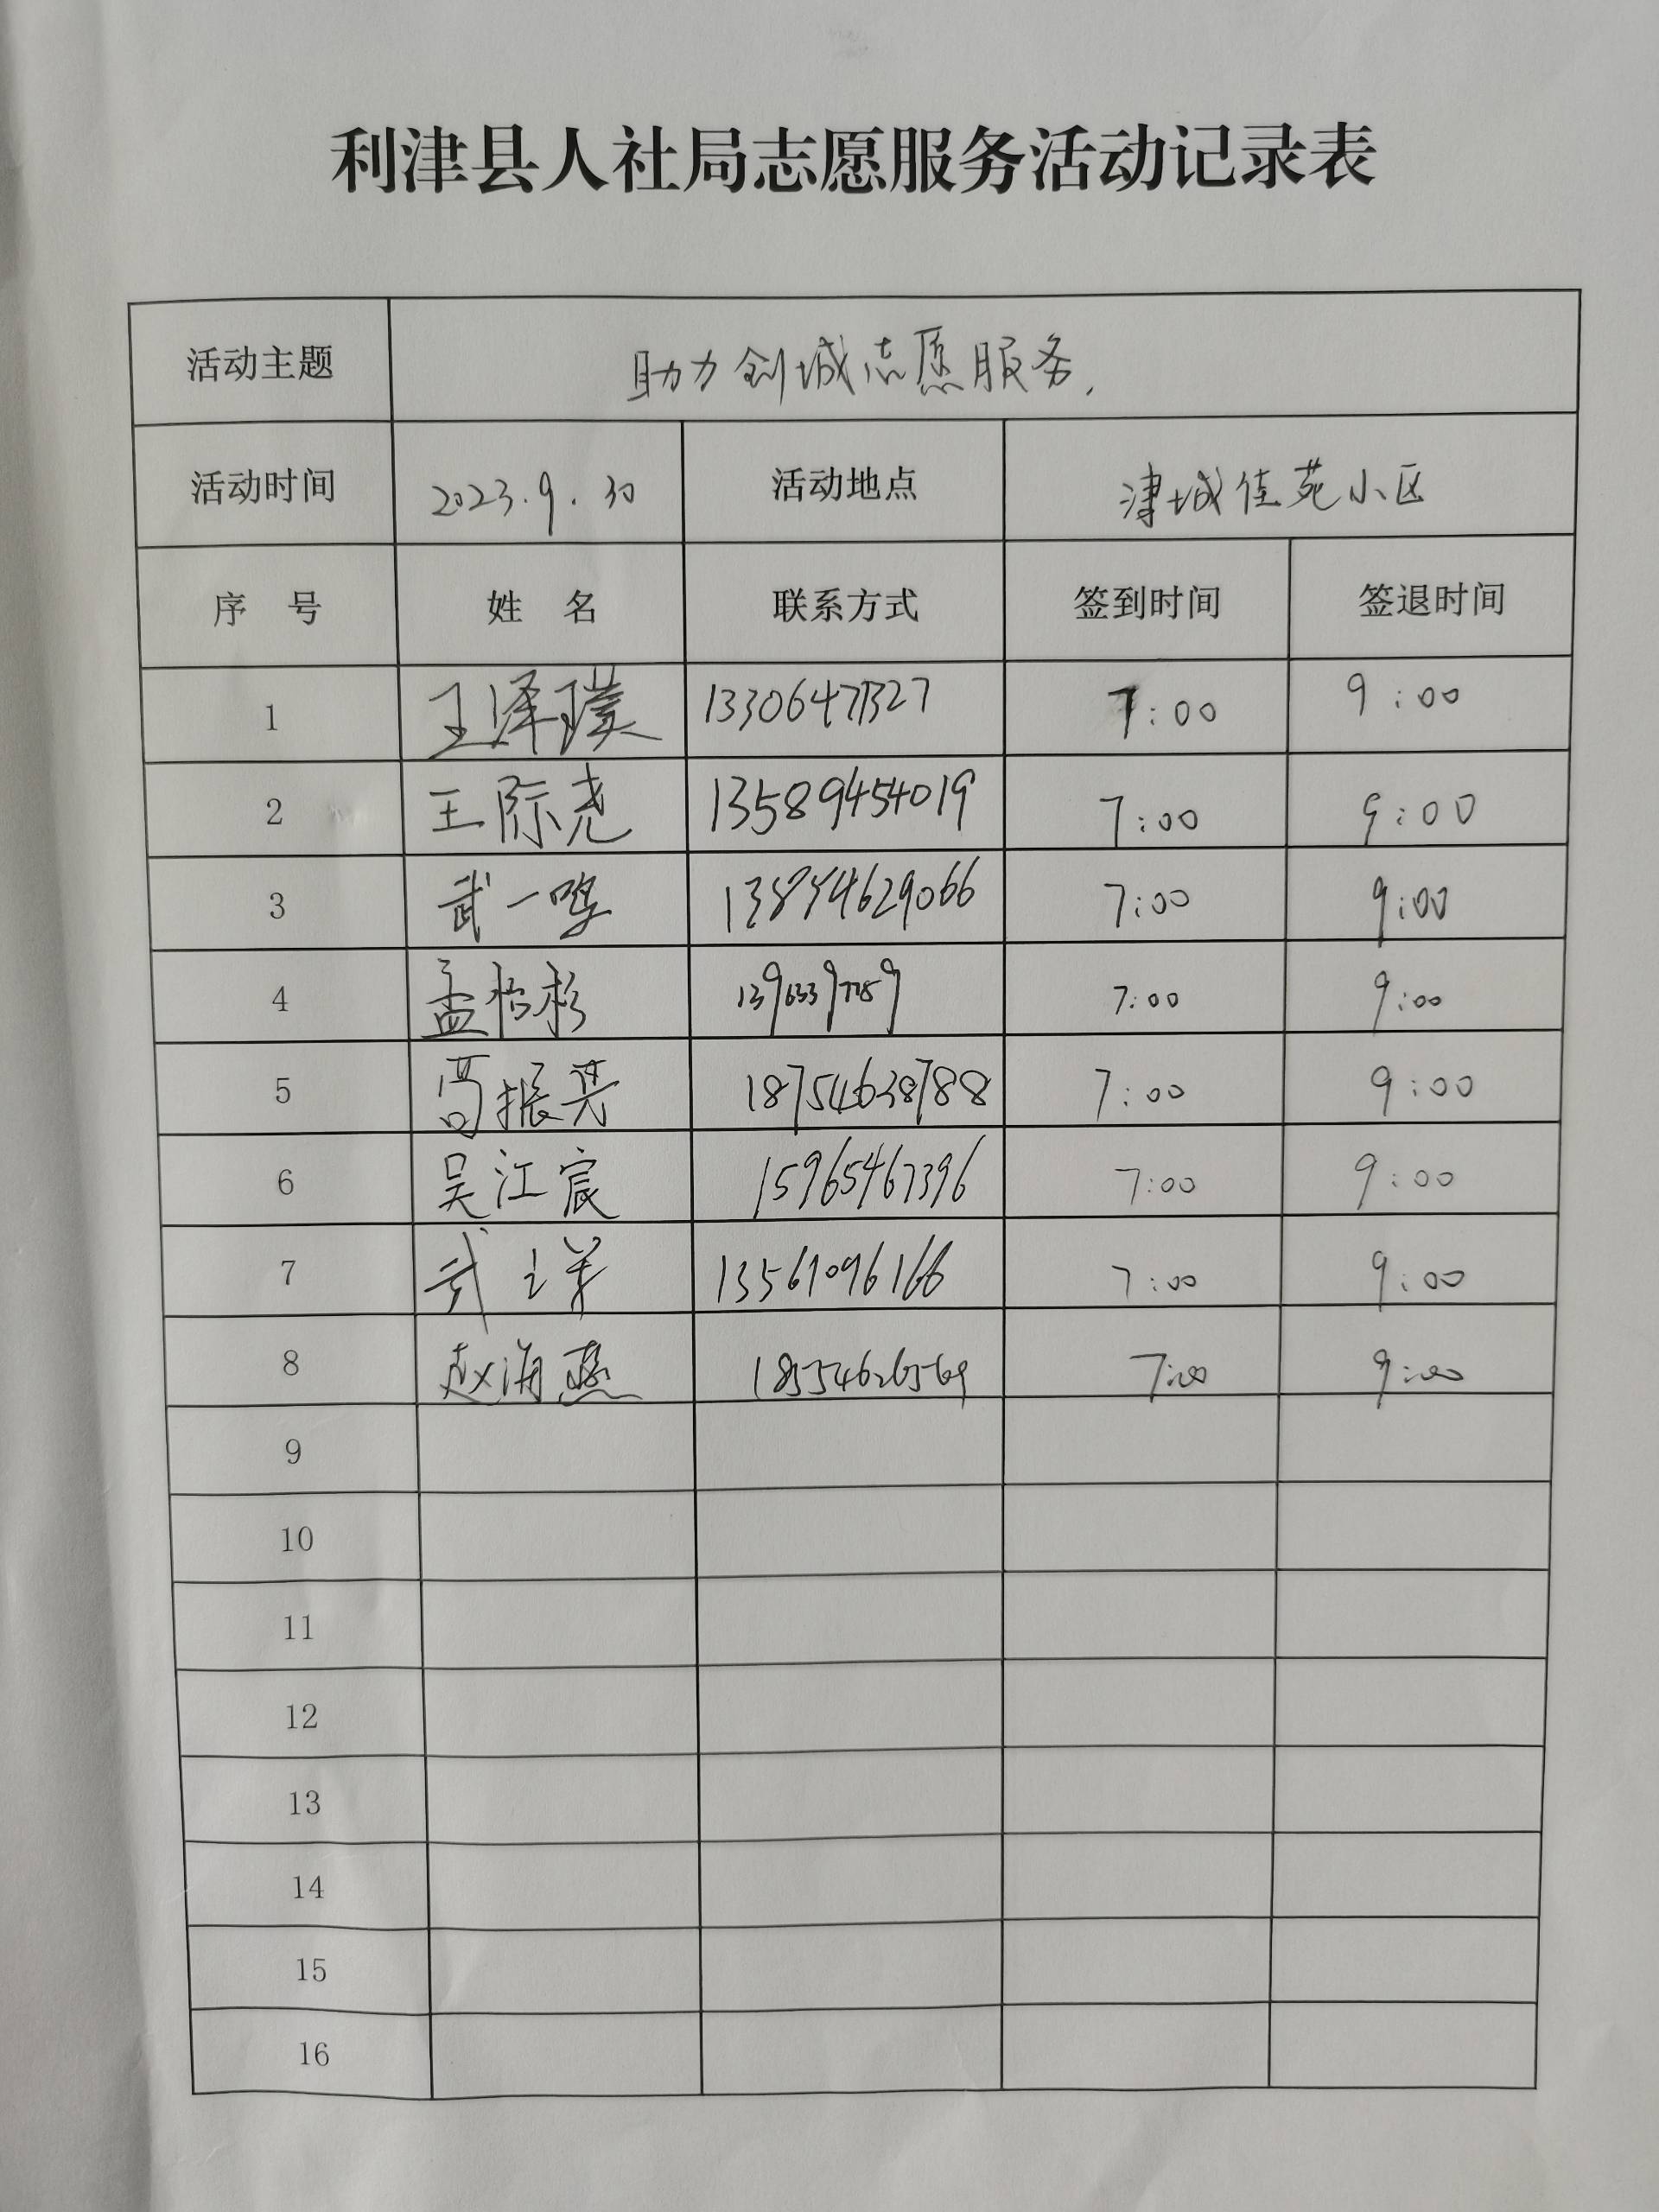 利津县人社局志愿服务活动记录表
活动主题 助力创城志愿服务.
活动时间 2023.9.30 活动地点 津城佳苑小区
序 号 姓 名 联系方式 签到时间 签退时间
1 王泽璞 13306471327 7:00 9:00
2 王际尧 13589454019 7:00 9:00
3 武一鸣 13854629066 7:00 9:00
4 孟 杉 7:00 9:00
5 高振兴 18754638788 7:00 9:00
6 吴江宸 15965467396 7:00 9:00
7 武 13561096166 7:00 9:00
8 赵海燕 18554626569 7:00 9:00
9
10
11
12
13
14
15
16